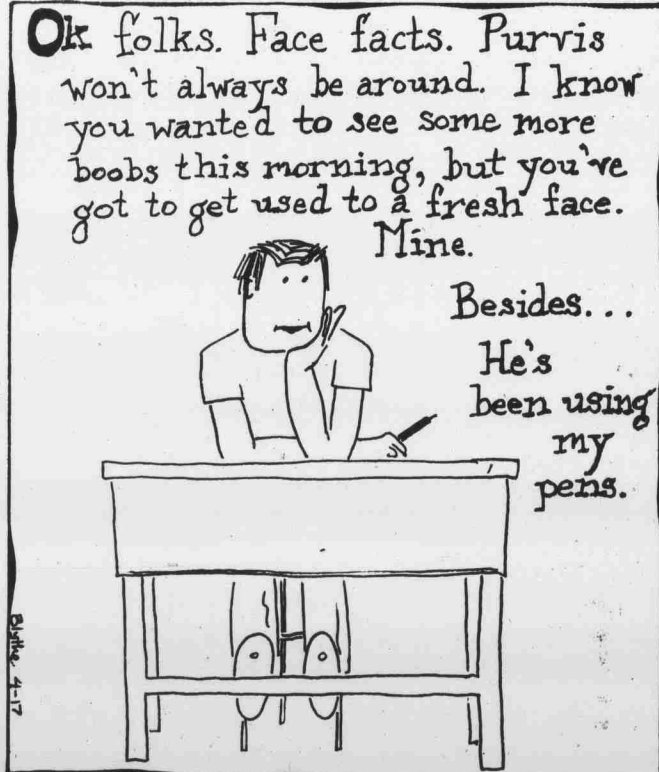 Ok folks. Face facts. Purvis
won't always be around. I know
you wanted to see some more
boobs this morning, but you've
got to get used to a fresh face.
Mine.
Besides...
He's
been using
my
pens.
Blythe 4-17